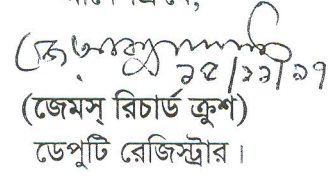 ১৫/১১/১৭
(জেমস্ রিচার্ড ক্রুশ)
ডেপুটি রেজিস্ট্রার।